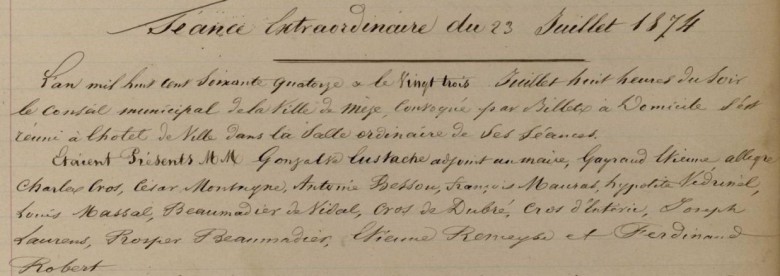 Séance Extraordinaire du 23 Juillet 1874
L'an mil huit cent Soixante quatorze & le Vingt trois Juillet huit heures du Soir
le Conseil municipal de la Ville de Mèze, Convoqué par Billets à Domicile s'est
réuni à l'hotel de Ville dans la Salle ordinaire de Ses Séances.
Etaient Présents MM Gonzalve Eustache adjoint au maire, Gayraud Etienne allègre
Charles Cros, César Montagne, Antoine Bessou, françois Maurras, hypolite Védrinel,
Louis Massal, Beaumadier de Vidal, Cros de Dubré, Cros d'Intérin, Joseph
Laurens, Prosper Beaumadier, Etienne Remeyse et Ferdinand
Robert